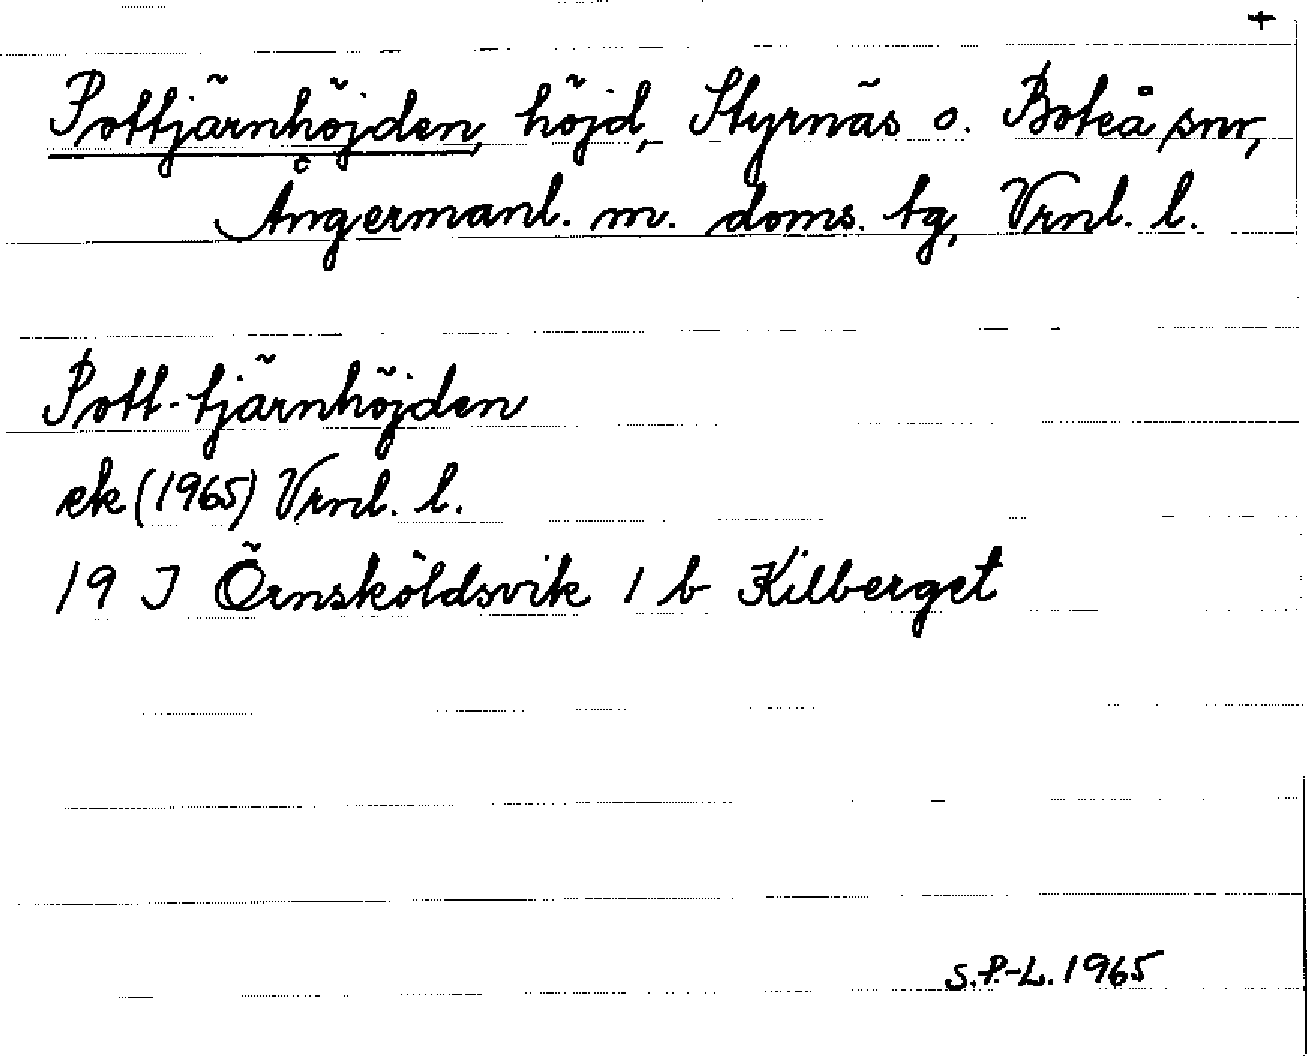 +
Pottjärnhöjden, höjd, Styrnäs o. Boteå snr,
Ångermanl. m. doms. tg, Vrnl. l.
Pott-tjärnhöjden
ek (1965) Vrnl. l.
19 J Örnsköldsvik 1 b Kilberget
S.P-L. 1965